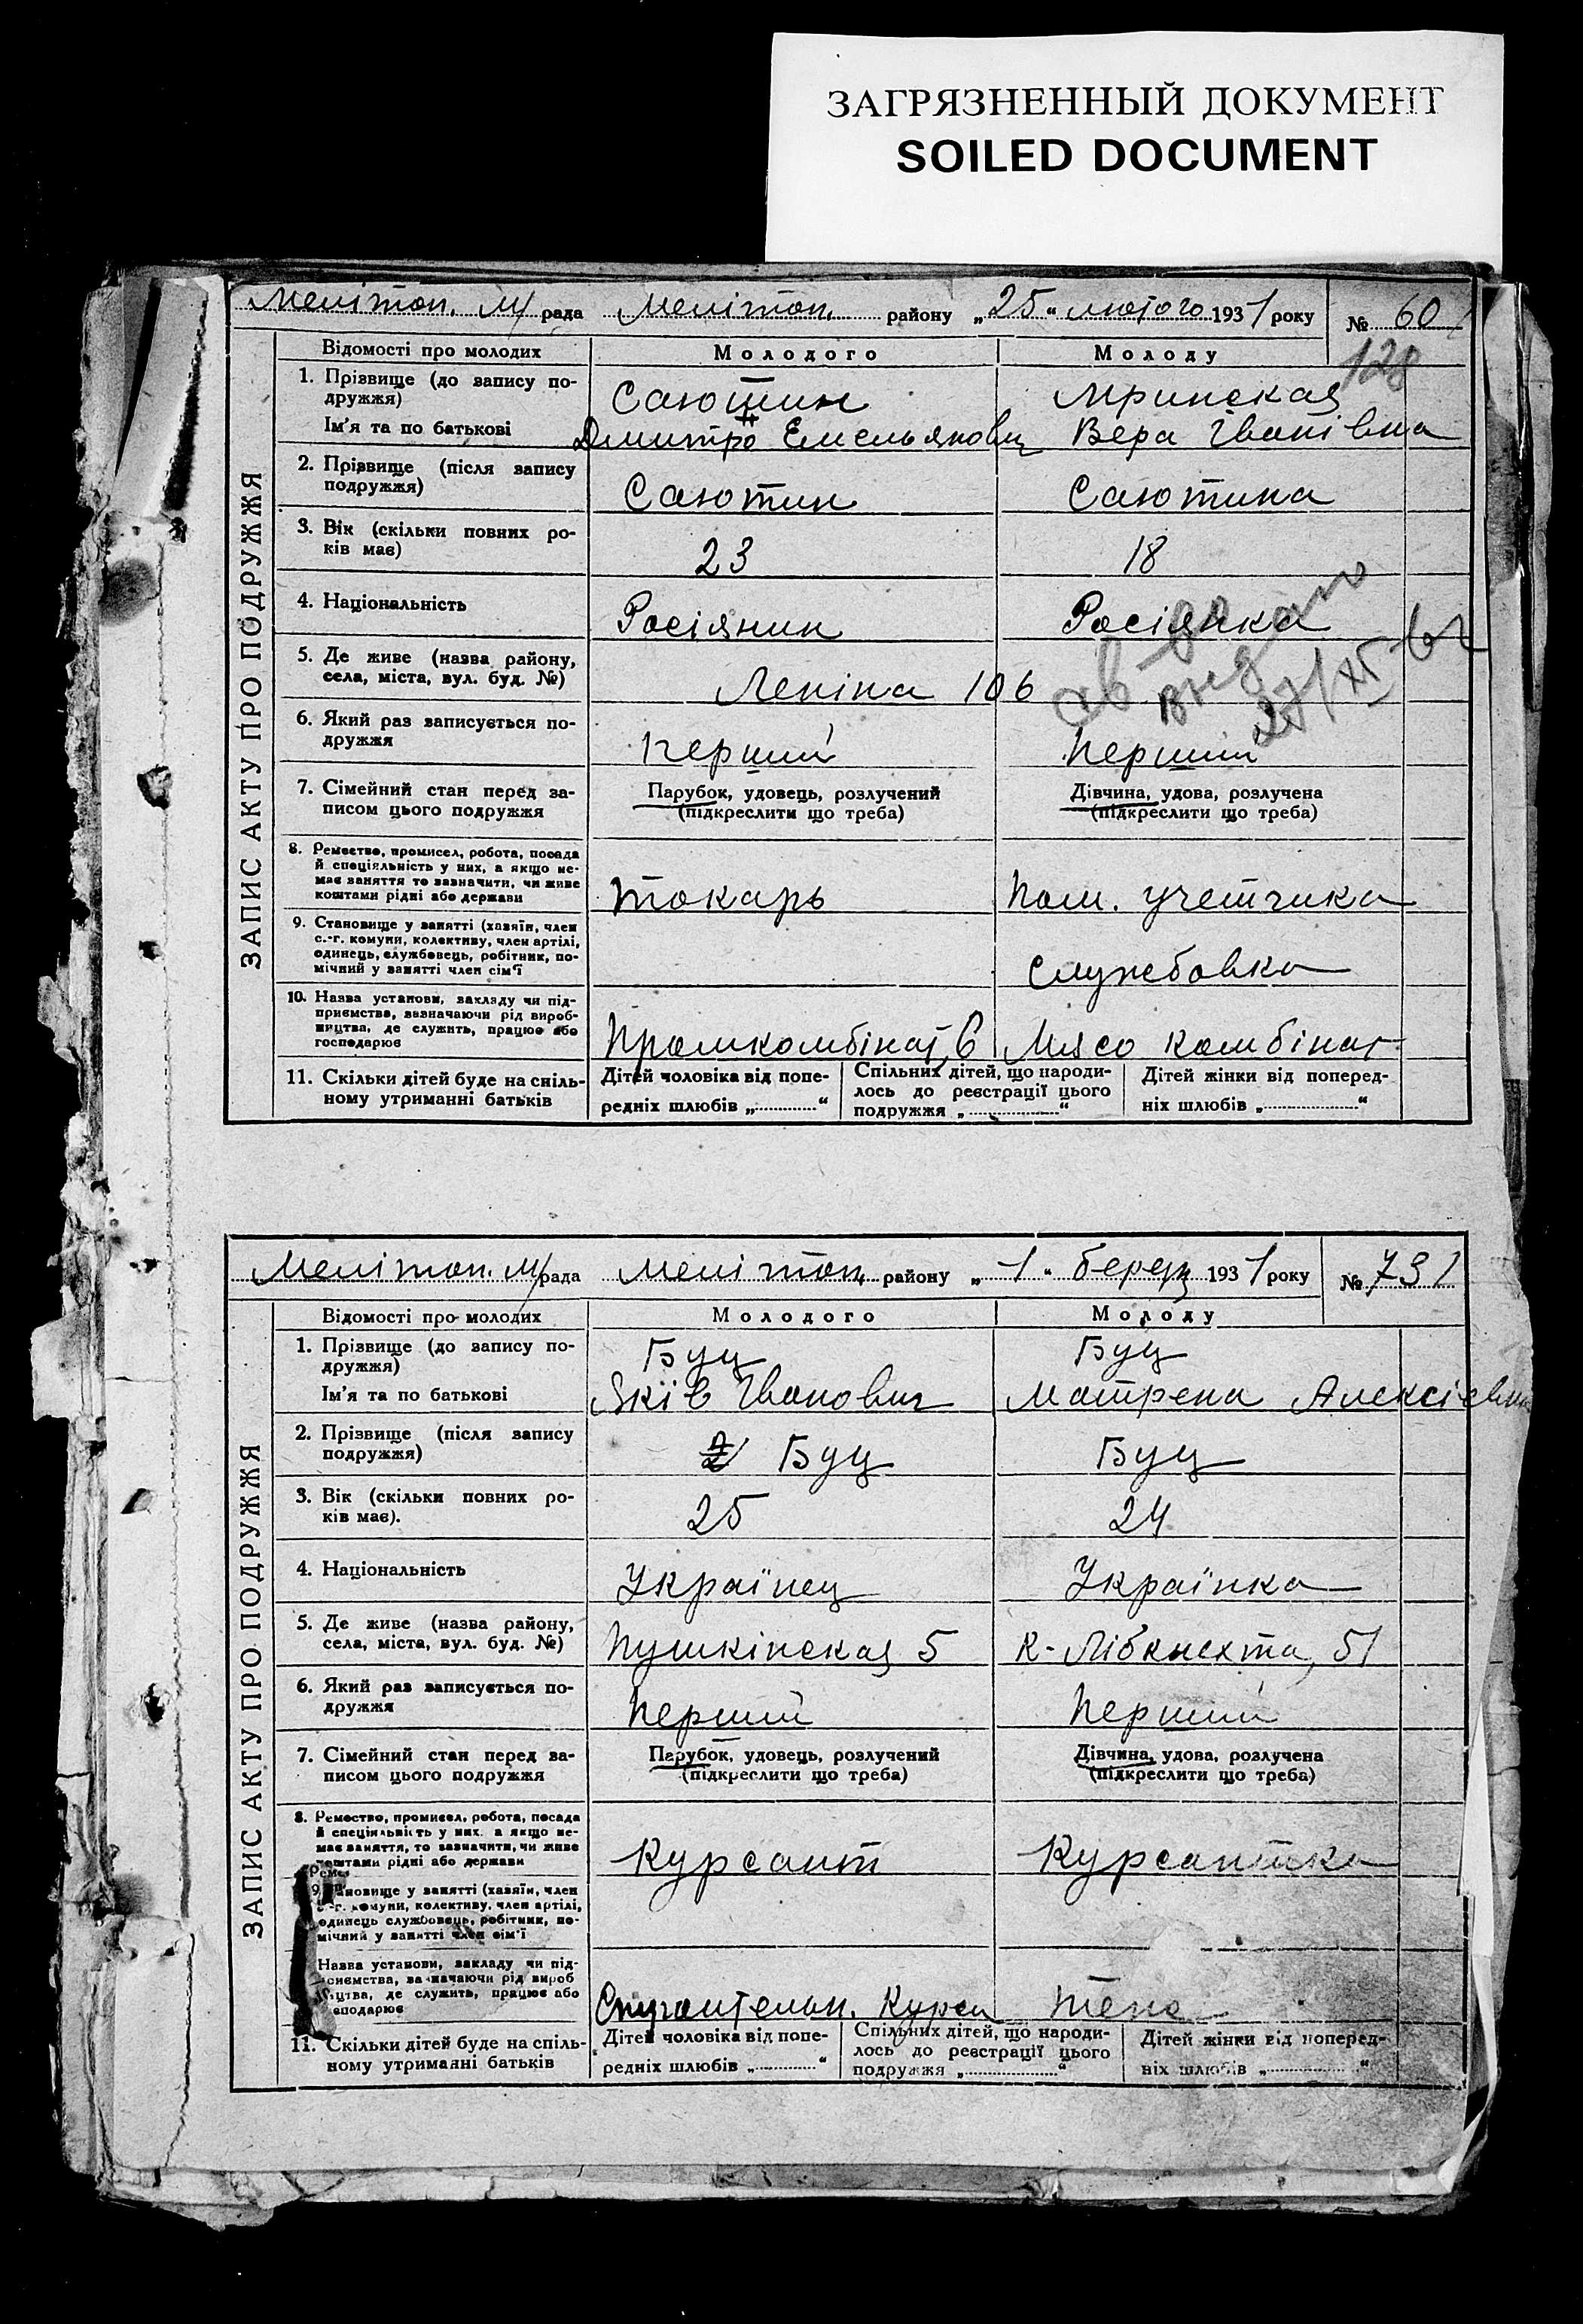 ЗАГРЯЗНЕННЫЙ ДОКУМЕНТ
SOILED DOCUMENT
Мелітоп. м/рада Мелітоп. району „25“ лютого 1931 року № 60
128
ЗАПИС АКТУ ПРО ПОДРУЖЖЯ
Відомості про молодих Молодого Молоду
1. Прізвище (до запису по-
дружжя) Саютин Мринская
Ім'я та по батькові Дмитро Емельянович Вера Іванівна
2. Прізвище (після запису
подружжя) Саютин Саютина
3. Вік (скільки повних ро-
ків має) 23 18
4. Національність Росіянин Росіянка
5. Де живе (назва району,
села, міста, вул. буд. №) Леніна 106
27/XI
6. Який раз записується по-
дружжя Перший Перший
7. Сімейний стан перед за- Парубок, удовець, розлучений Дівчина, удова, розлучена
писом цього подружжя (підкреслити що треба) (підкреслити що треба)
8. Ремество, промисел, робота, посада
й спеціяльність у них, а якщо не-
має заняття то зазначити, чи живе
коштами рідні або держави токарь пом. учетчика
9. Становище у занятті (хазяїн, член
с.-г. комуни, колективу, член артілі,
одинець, службовець, робітник, по-
мічний у занятті член сім'ї службовка
10. Назва установи, закладу чи під-
приємства, зазначаючи рід вироб-
ництва, де служить, працює або
господарює Промкомбінат, 6 Мясо комбінат
11. Скільки дітей буде на спіль- Дітей чоловіка від попе- Спільних дітей, що народи- Дітей жінки від поперед-
ному утриманні батьків редніх шлюбів „ “ лось до реєстрації цього ніх шлюбів „ “
подружжя „ “
Мелітоп. м/рада Мелітоп. району „1“ берез 1931 року № 731
ЗАПИС АКТУ ПРО ПОДРУЖЖЯ
Відомості про молодих Молодого Молоду
1. Прізвище (до запису по-
дружжя) Буц Буц
Ім'я та по батькові Яків Іванович Матрена Алексієвна
2. Прізвище (після запису
подружжя) Буц Буц
3. Вік (скільки повних ро-
ків має). 25 24
4. Національність Українец Українка
5. Де живе (назва району,
села, міста, вул. буд. №) Пушкінская 5 К-Лібкнехта, 51
6. Який раз записується по-
дружжя Перший Перший
7. Сімейний стан перед за- Парубок, удовець, розлучений Дівчина, удова, розлучена
писом цього подружжя (підкреслити що треба) (підкреслити що треба)
8. Ремество, промисел, робота, посада
й спеціяльність у них, а якщо не-
має заняття, то зазначити, чи живе
коштами рідні або держави Курсант Курсантка
9. становище у занятті (хазяїн, член
с.-г. комуни, колективу, член артілі,
одинець службовець, робітник, по-
мічний у занятті член сім'ї
Назва установи, закладу чи під-
приємства, зазначаючи рід вироб
ництва, де служить, працює або
господарює Курси
11. Скільки дітей буде на спіль- Дітей чоловіка від попе- Спільних дітей, що народи- Дітей жінки від поперед-
ному утриманні батьків редніх шлюбів „ “ лось до реєстрації цього ніх шлюбів „ “
подружжя „ “